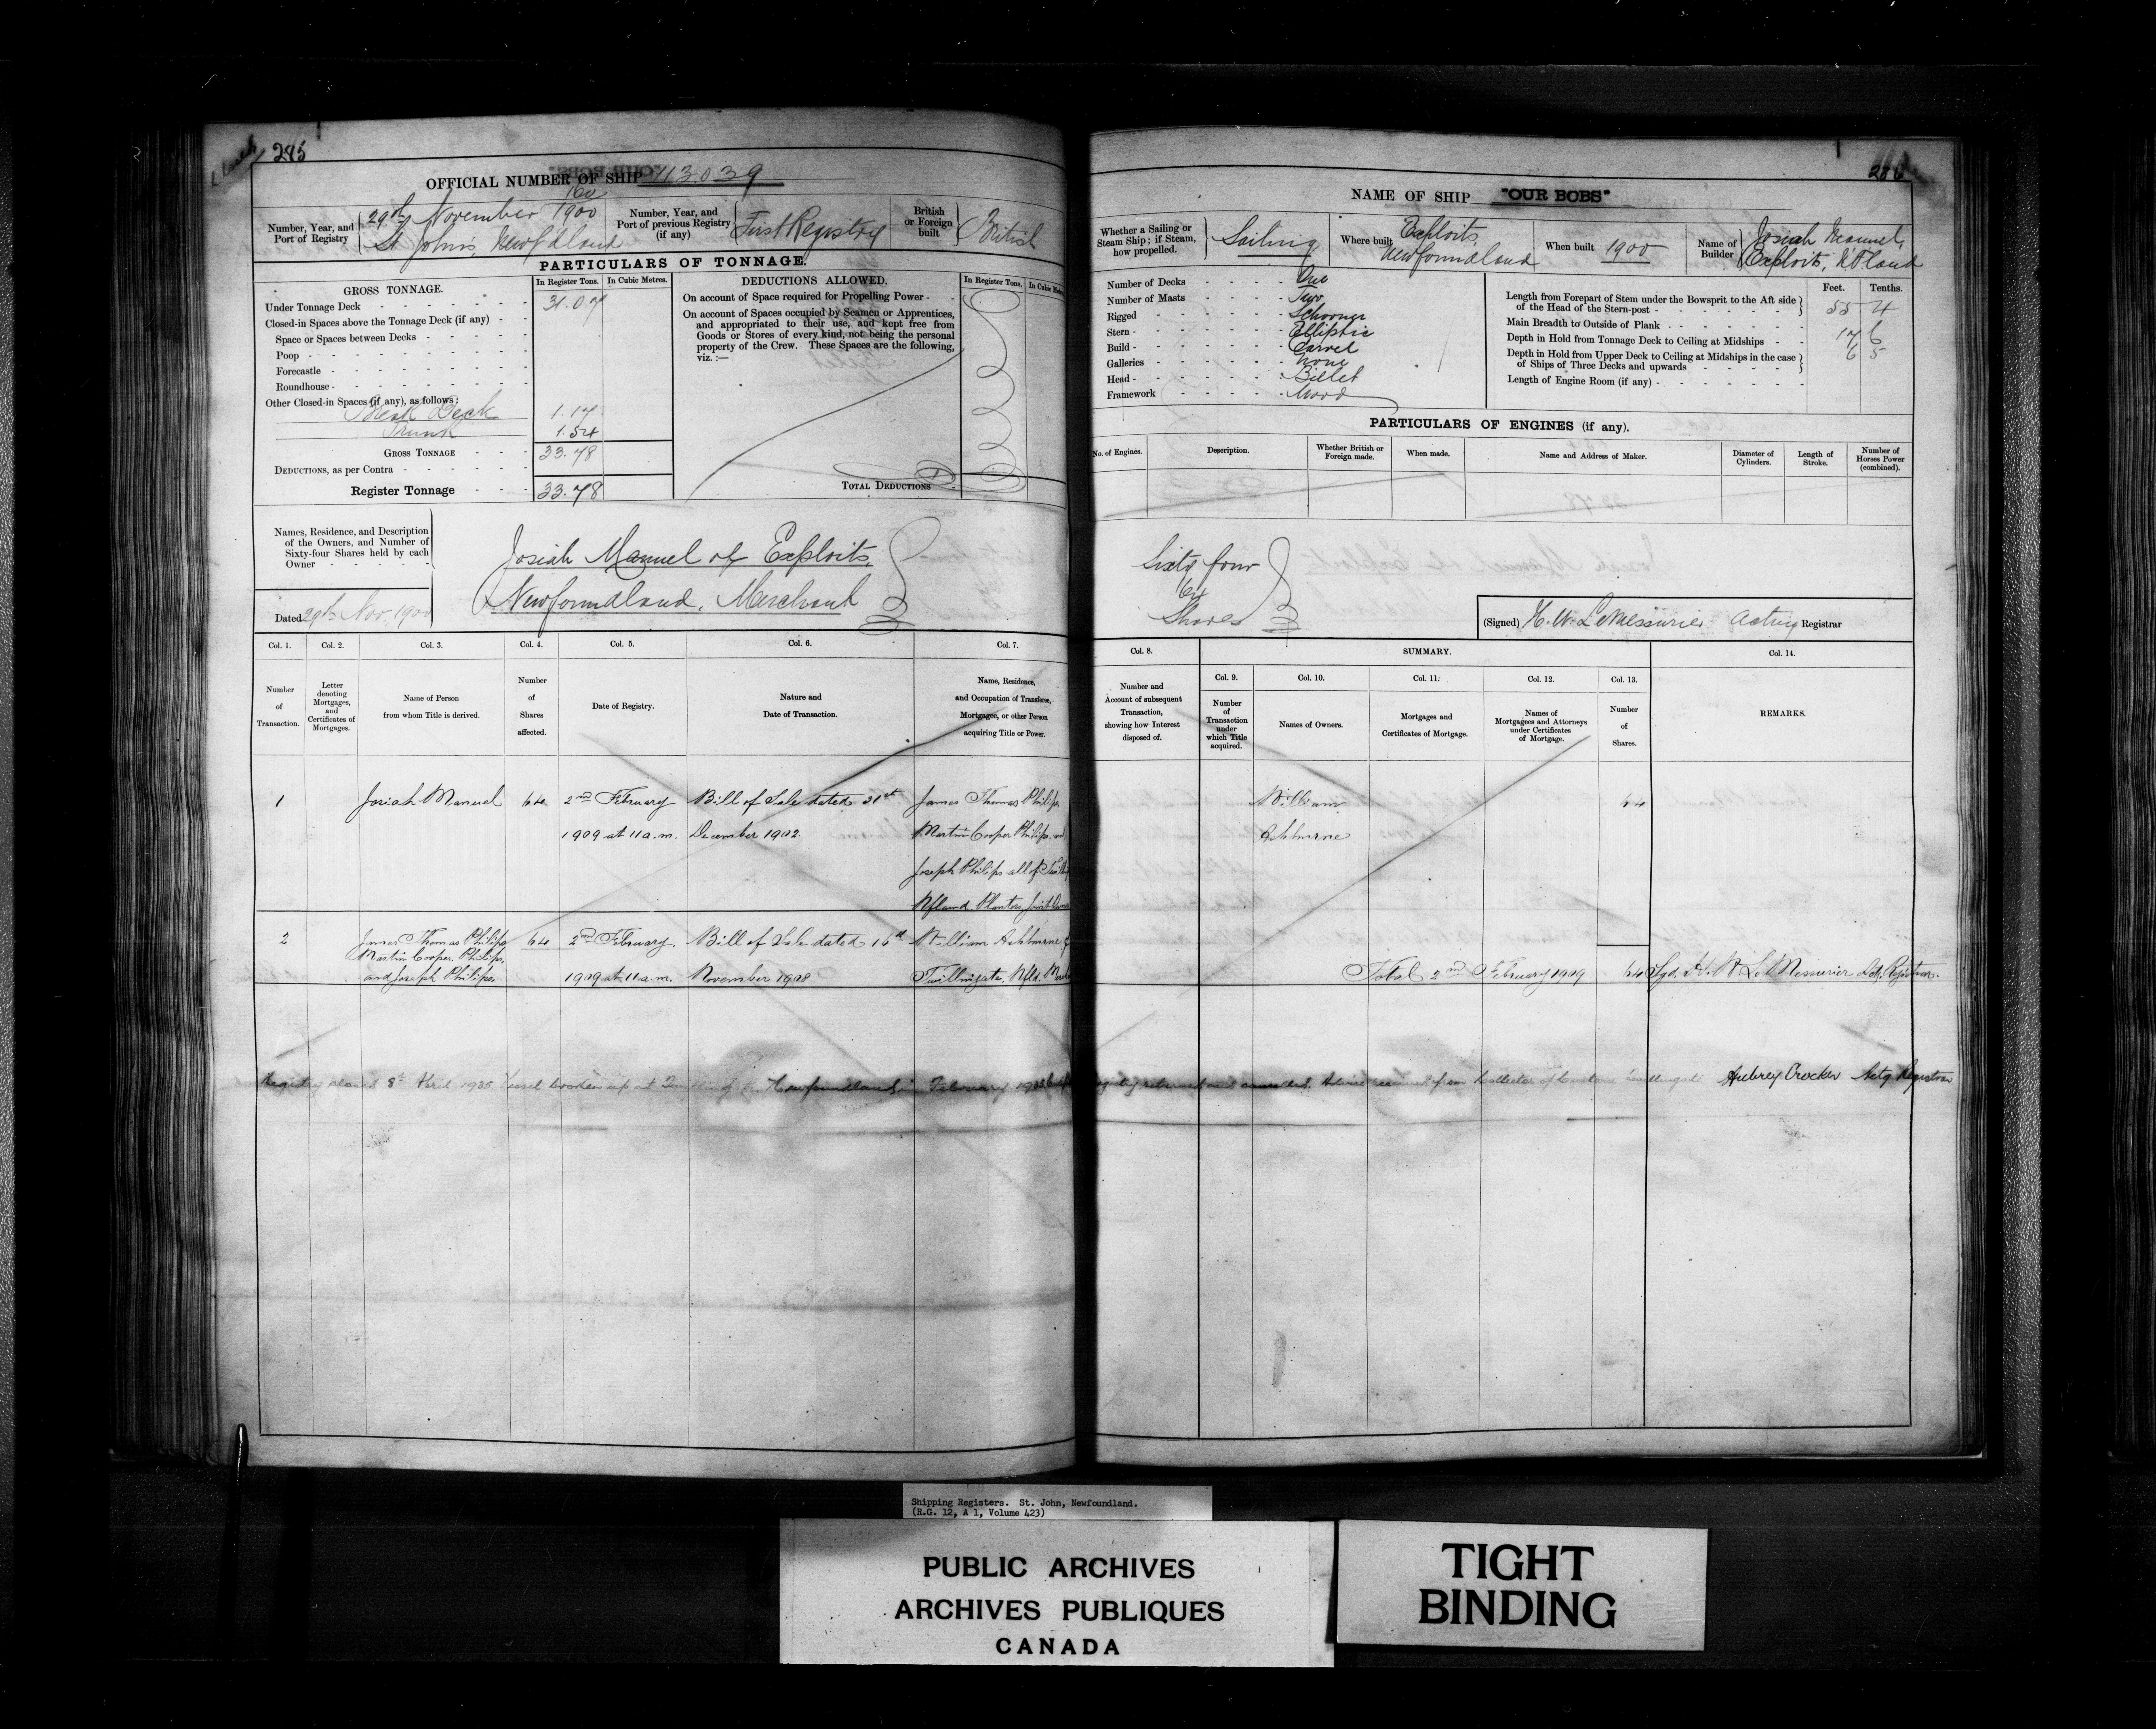 285
OFFICIAL NUMBER OF SHIP 113.039
Number, Year, and Port of Registry
160
29th November 1900
St John's, Newfdland
Number, Year, and Port of previous Registry (if any)
First Registry
British or Foreign built
British
PARTICULARS OF TONNAGE.
GROSS TONNAGE.
In Register Tons.
In Cubic Metres.
Under Tonnage Deck 31.07
Closed-in Spaces above the Tonnage Deck (if any)
Space or Spaces between Decks
Poop
Forecastle
Roundhouse
Other Closed-in Spaces (if any), as follows:
Break Deck 1.17
Trunk 1.54
GROSS TONNAGE 33.78
DEDUCTIONS, as per Contra
Register Tonnage 33.78
DEDUCTIONS ALLOWED.
In Register Tons.
In Cubic
On account of Space required for Propelling Power
On account of Spaces occupied by Seamen or Apprentices,
and appropriated to their use, and kept free from
Goods or Stores of every kind, not being the personal
property of the Crew. These Spaces are the following,
viz. :—
TOTAL DEDUCTIONS
Names, Residence, and Description
of the Owners, and Number of
Sixty-four Shares held by each
Owner
Josiah Manuel of Exploits,
Newfoundland, Merchant
Dated 29th Nov. 1900
Col. 1.
Number of Transaction.
Col. 2.
Letter denoting Mortgages, and Certificates of Mortgages.
Col. 3.
Name of Person from whom Title is derived.
Col. 4.
Number of Shares affected.
Col. 5.
Date of Registry.
Col. 6.
Nature and Date of Transaction.
Col. 7.
Name, Residence, and Occupation of Transferee, Mortgagee, or other Person acquiring Title or Power.
1
Josiah Manuel
64
2nd February
1909 at 11 a.m.
Bill of Sale dated 31st
December 1902
James Thomas Philips
Martin Cooper Philips, and
Joseph Philips all of
Nfland. Planters Joint
2
James Thomas Philips
Martin Cooper Philips,
and Joseph Philips,
64
2nd February
1909 at 11 a.m.
Bill of Sale dated 16th
November 1908
William Ashburne of
Twillingate, Nfld.
Registry closed 8th April 1935. Vessel broken up at Newfoundland, in February
286
NAME OF SHIP "OUR BOBS"
Whether a Sailing or Steam Ship; if Steam, how propelled.
Sailing
Where built
Exploits,
Newfoundland
When built 1900
Name of Builder
Josiah Manuel,
Exploits, Nfland
Number of Decks One
Number of Masts Two
Rigged Schooner
Stern Elliptic
Build Carvel
Galleries None
Head Billet
Framework Wood
Feet. Tenths.
Length from Forepart of Stem under the Bowsprit to the Aft side
of the Head of the Stern-post 55 4
Main Breadth to Outside of Plank 17 6
Depth in Hold from Tonnage Deck to Ceiling at Midships 6 5
Depth in Hold from Upper Deck to Ceiling at Midships in the case
of Ships of Three Decks and upwards
Length of Engine Room (if any)
PARTICULARS OF ENGINES (if any).
No. of Engines.
Description.
Whether British or Foreign made.
When made.
Name and Address of Maker.
Diameter of Cylinders.
Length of Stroke.
Number of Horses Power (combined).
Sixty four
64
Shares
(Signed) H. W. LeMessurier Acting Registrar
Col. 8.
Number and Account of subsequent Transaction, showing how Interest disposed of.
SUMMARY.
Col. 9.
Number of Transaction under which Title acquired.
Col. 10.
Names of Owners.
Col. 11.
Mortgages and Certificates of Mortgage.
Col. 12.
Names of Mortgagees and Attorneys under Certificates of Mortgage.
Col. 13.
Number of Shares.
Col. 14.
REMARKS.
William
Ashburne
64
Total 2nd February 1909 64 Sgd. H. W. LeMessurier Actg. Registrar.
Aubrey Crocker Actg Registrar
Shipping Registers. St. John, Newfoundland.
(R.G. 12, A 1, Volume 423)
PUBLIC ARCHIVES
ARCHIVES PUBLIQUES
CANADA
TIGHT
BINDING